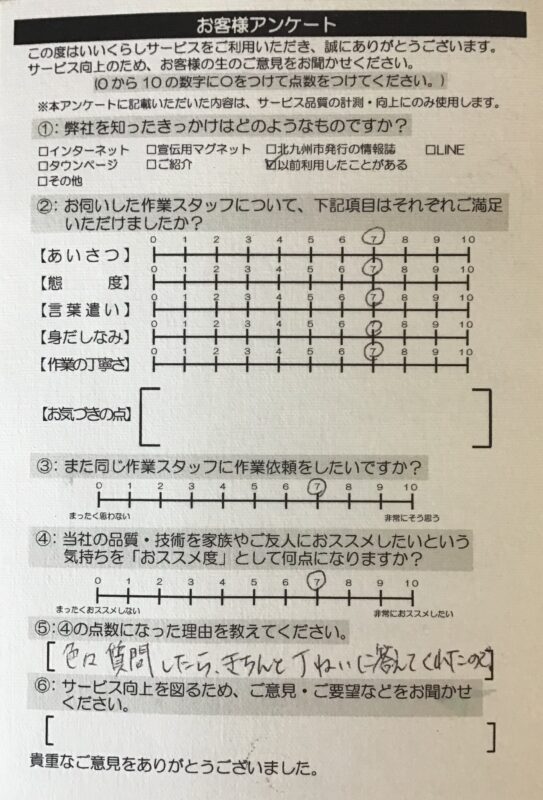 お客様アンケート
この度はいいくらしサービスをご利用いただき、誠にありがとうございます。
サービス向上のため、お客様の生のご意見をお聞かせください。
(０から１０の数字に○をつけて点数をつけてください。)
※本アンケートに記載いただいた内容は、サービス品質の計測・向上にのみ使用します。
①：弊社を知ったきっかけはどのようなものですか？
□インターネット □宣伝用マグネット □北九州市発行の情報誌 □LINE
□タウンページ □ご紹介 ☑以前利用したことがある
□その他
②：お伺いした作業スタッフについて、下記項目はそれぞれご満足
いただけましたか？
0 1 2 3 4 5 6 7 8 9 10
【あいさつ】
0 1 2 3 4 5 6 7 8 9 10
【態度】
0 1 2 3 4 5 6 7 8 9 10
【言葉遣い】
0 1 2 3 4 5 6 7 8 9 10
【身だしなみ】
0 1 2 3 4 5 6 7 8 9 10
【作業の丁寧さ】
【お気づきの点】
③：また同じ作業スタッフに作業依頼をしたいですか？
0 1 2 3 4 5 6 7 8 9 10
まったく思わない 非常にそう思う
④：当社の品質・技術を家族やご友人におススメしたいという
気持ちを「おススメ度」として何点になりますか？
0 1 2 3 4 5 6 7 8 9 10
まったくおススメしない 非常におススメしたい
⑤：④の点数になった理由を教えてください。
質問したら、きちんと丁ねいに答えてくれたので
⑥：サービス向上を図るため、ご意見・ご要望などをお聞かせ
ください。
貴重なご意見をありがとうございました。